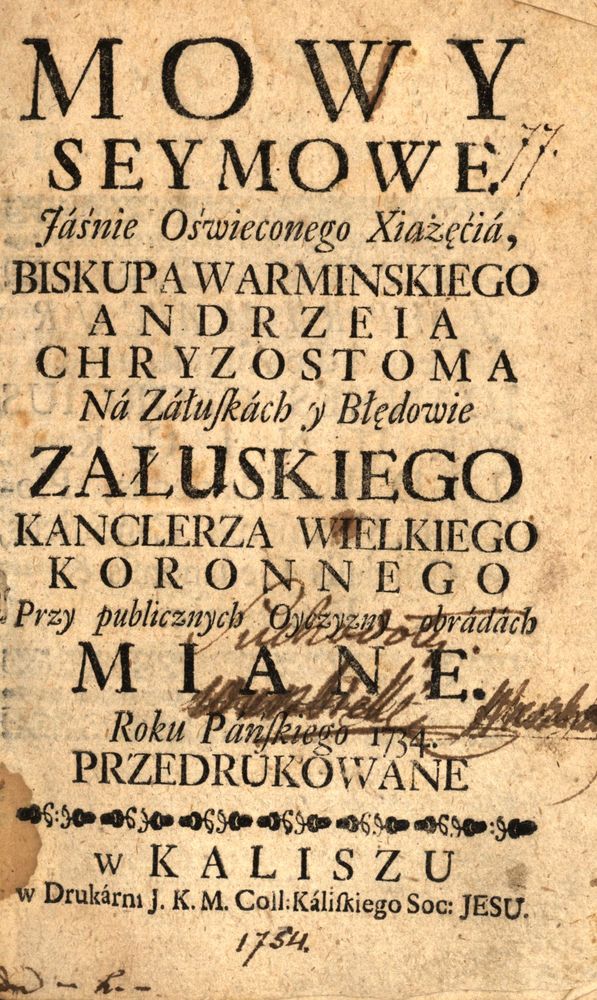 MOWY
SEYMOWE
77.
Jáśnie Oświeconego Xiażęćiá,
BISKUPA WARMINSKIEGO
ANDRZEIA
CHRYZOSTOMA
Ná Záłuſkách y Błędowie
ZAŁUSKIEGO
KANCLERZA WIELKIEGO
KORONNEGO
Przy publicznych Oyczyzny obrádách
MIANE.
Roku Páńſkiego 1734.
PRZEDRUKOWANE
w KALISZU
w Drukárni J. K. M. Coll: Káliſkiego Soc: JESU.
1754.